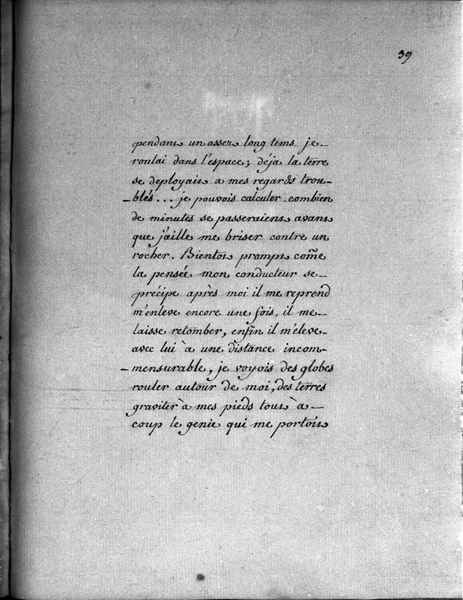 39
pendant un assez long tems je
roulai dans l'espace; déja la terre
se deployait a mes regards trou-
-blés... je pouvois calculer combien
de minutes se passeraient avant
que j'aille me briser contre un
rocher. Bientot prompt come
la pensée mon conducteur se
précipe après moi il me reprend
m'enleve encore une fois, il me
laisse retomber, enfin il m'eleve
avec lui à une distance incom-
-mensurable, je voyois des globes
rouler autour de moi, des terres
graviter à mes pieds tout à
coup le genie qui me portoit